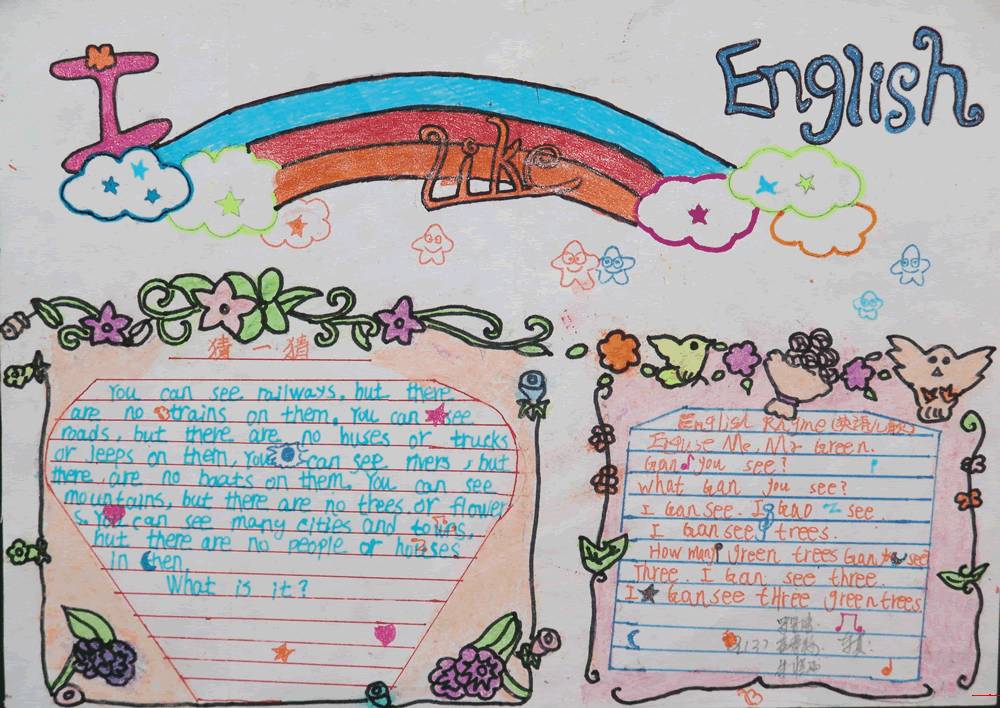 I
Like
English
猜一猜
You can see railways, but there
are no trains on them. You can see
roads, but there are no buses or trucks
or Jeeps on them, You can see rivers, but
there are no boats on them. You can see
mountains, but there are no trees or flower
s. You can see many cities and towns,
but there are no people or houses
in then.
What is it?
English Rhyme
Engluse Me, Mr Green.
Gan you see?
what Gan you see?
I Gan see. I see
I Gan see trees.
How many green trees Gan see
Three. I Gan see three.
I Gan see tHree green trees